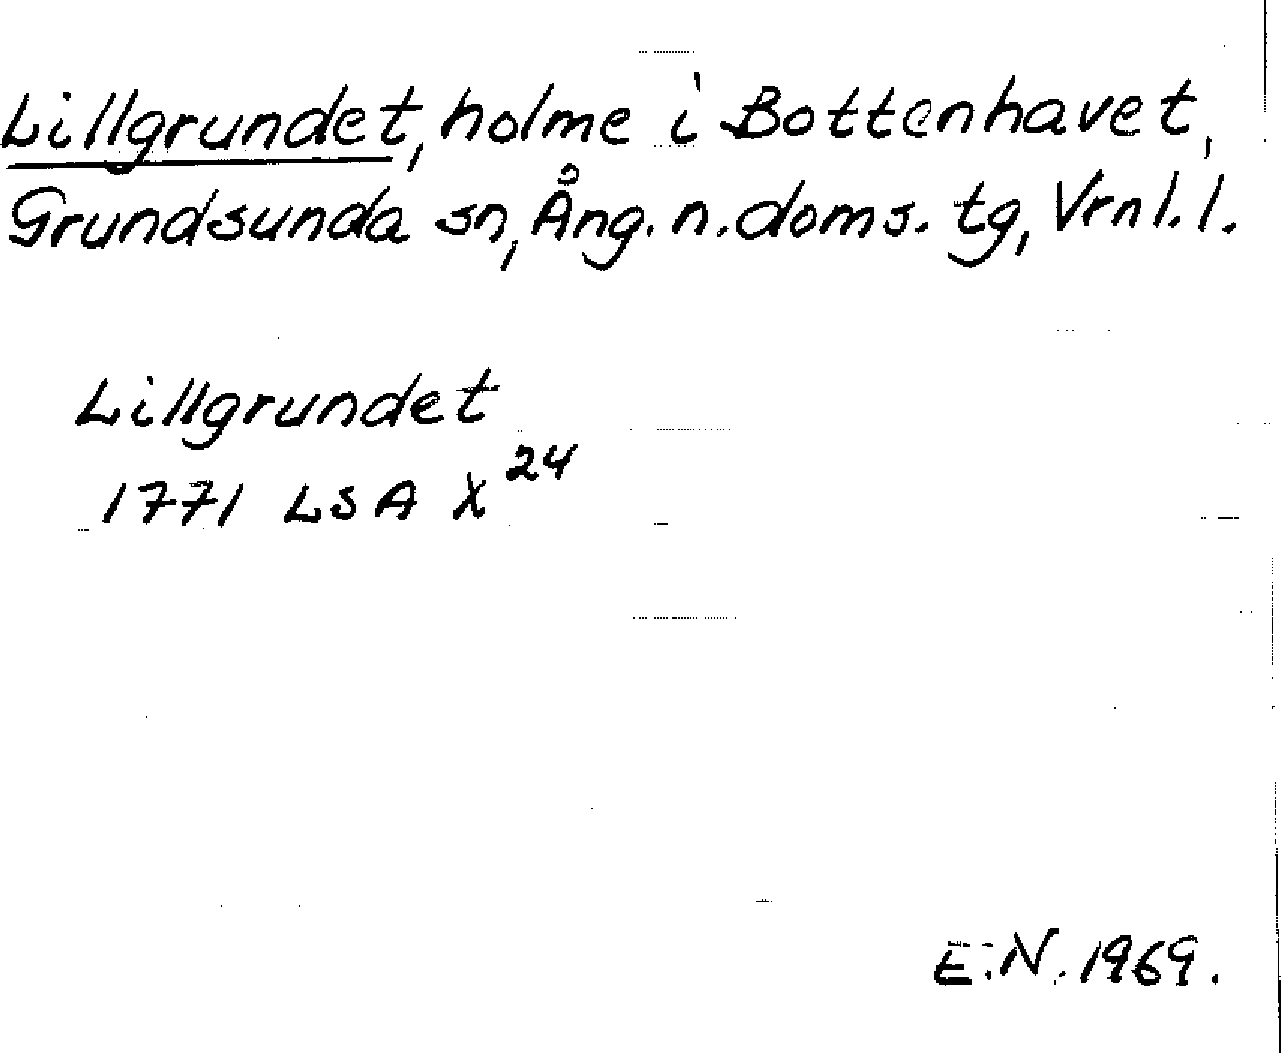 Lillgrundet, holme i Bottenhavet,
Grundsunda sn, Ång. n. doms. tg, Vrnl. l.
Lillgrundet
1771 LSA X²⁴
E.N. 1969.